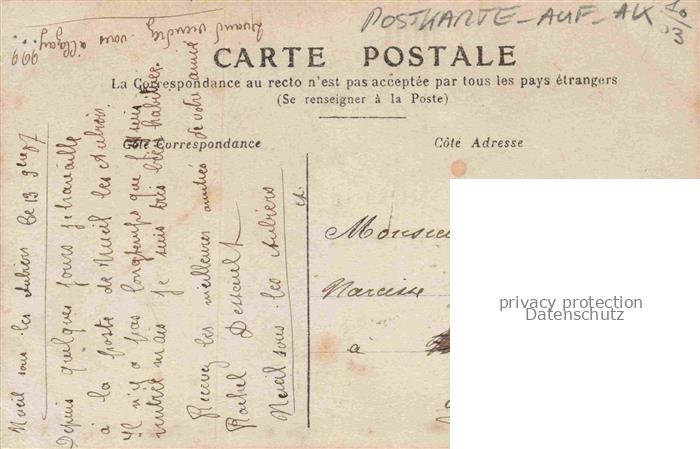 POSTKARTE-AUF-AK
10
03
CARTE POSTALE
La Correspondance au recto n'est pas acceptée par tous les pays étrangers
(Se renseigner à la Poste)
Côté Correspondance
Côté Adresse
Nueil sous les Aubiers le 13 9bre 07
Depuis quelques jours je travaille
à la poste de Nueil les Aubiers.
Il n'y a pas longtemps que
mais je suis très bien habituée.
Recevez les meilleures amitiés de votre amie
Rachel
Nueil sous les Aubiers
Quand viendrez vous
Monsieu
Narcisse
à
privacy protection
Datenschutz